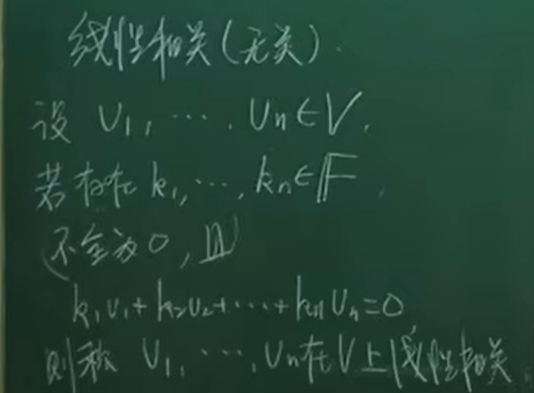 线性相关(无关).
设 v₁, ⋯, vₙ∈V,
若存在 k₁, ⋯, kₙ∈𝔽,
(不全为0, 且
k₁v₁+k₂v₂+⋯+kₙvₙ=0
则称 v₁, ⋯, vₙ在V上线性相关